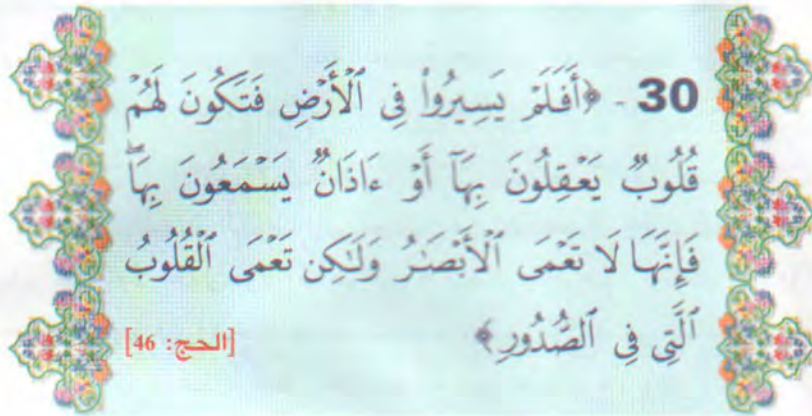 30 - ﴿أَفَلَمْ يَسِيرُوا۟ فِى ٱلْأَرْضِ فَتَكُونَ لَهُمْ
قُلُوبٌ يَعْقِلُونَ بِهَآ أَوْ ءَاذَانٌ يَسْمَعُونَ بِهَا ۖ
فَإِنَّهَا لَا تَعْمَى ٱلْأَبْصَـٰرُ وَلَـٰكِن تَعْمَى ٱلْقُلُوبُ
ٱلَّتِى فِى ٱلصُّدُورِ﴾ [الحج: 46]